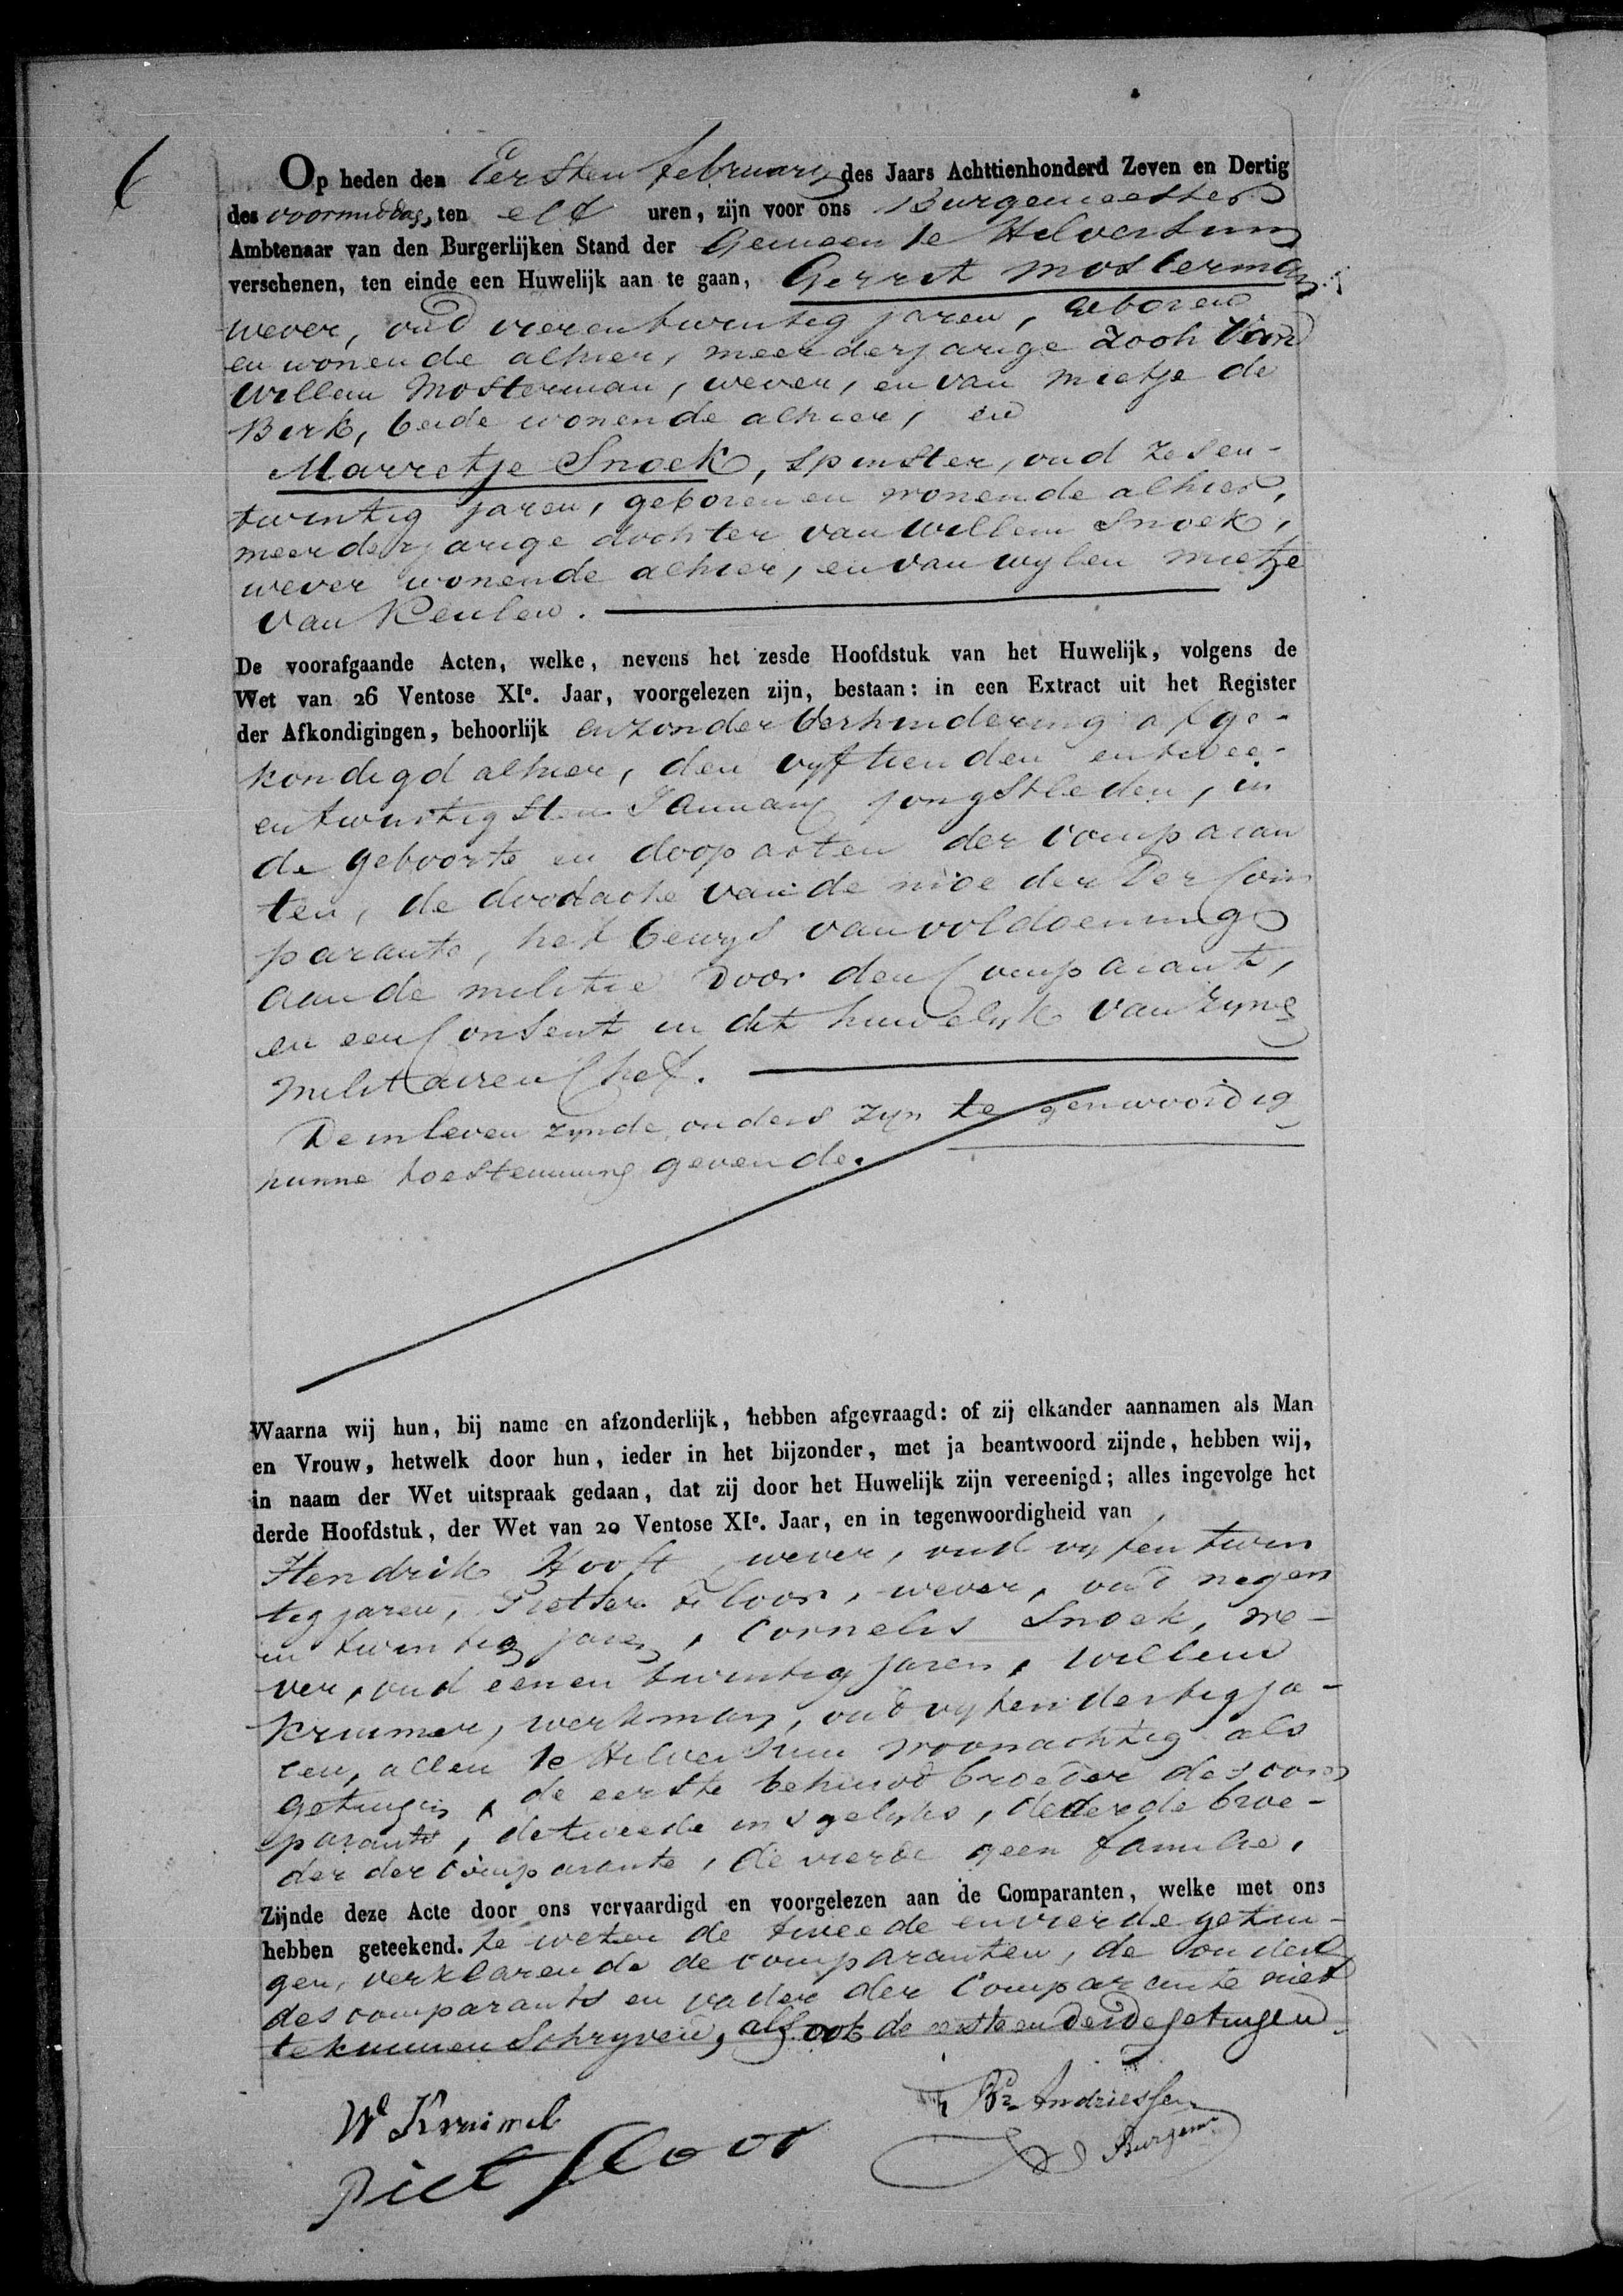 6
Op heden den Eersten february des Jaars Achttienhonderd Zeven en Dertig
des voormiddag, ten elf uren, zijn voor ons Burgemeester
Ambtenaar van den Burgerlijken Stand der Gemeente Hilversum
verschenen, ten einde een Huwelijk aan te gaan, Gerrit Mosterman
wever, oud vierentwintig jaren, geboren
en wonende alhier, meerderjarige zoon van
Willem Mosterman, wever, en van mietje de
Birk, beide wonende alhier, en
Marretje Snoek, spinster, oud zesen-
twintig jaren, geboren en wonende alhier,
meerderjarige dochter van willem Snoek,
wever wonende alhier, en van wylen mietje
van Keulen.
De voorafgaande Acten, welke, nevens het zesde Hoofdstuk van het Huwelijk, volgens de
Wet van 26 Ventose XIe. Jaar, voorgelezen zijn, bestaan: in een Extract uit het Register
der Afkondigingen, behoorlijk en zonder verhindering afge-
kondigd alhier, den vyftienden en twee-
entwintigsten January jongstleden, in
de geboorte en doop acten der comparan
ten, de doodacte van de moe der Der Com
parante, het bewys van voldoening
aan de militie door den Comparant,
en een Consent in dit huwelyk van zyne
militairen Chef.
De in leven zynde ouders zyn te genwoordig
hunne toestemming gevende.
Waarna wij hun, bij name en afzonderlijk, hebben afgevraagd: of zij elkander aannamen als Man
en Vrouw, hetwelk door hun, ieder in het bijzonder, met ja beantwoord zijnde, hebben wij,
in naam der Wet uitspraak gedaan, dat zij door het Huwelijk zijn vereenigd; alles ingevolge het
derde Hoofdstuk, der Wet van 20 Ventose XIe. Jaar, en in tegenwoordigheid van
Hendrik Hooft, wever, oud vyfentwin
tig jaren, Pieter Floor, wever, oud negen
en twintig jaren, Cornelis Snoek, we-
ver, oud eenen twintig jaren, willem
Kruimer, werkman, oud vyfendertig ja-
ren, allen te Hilversum woonachtig als
getuigen, de eerste behuwd broeder des com
parants, de tweede insgelyks, de derde broe-
der der comparante, de vierde geen familie,
Zijnde deze Acte door ons vervaardigd en voorgelezen aan de Comparanten, welke met ons
hebben geteekend. te weten de tweede en vierde getui-
gen, verklarende de comparanten, de ouders
des comparants en vader der Comparante niet
te kunnen Schryven, als ook de eerste en derde getuigen
W Kruimel
Piet floor
Andriessen
Burgemr